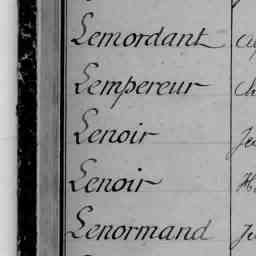 Lemordant
Lempereur
Lenoir
Lenoir
Lenormand